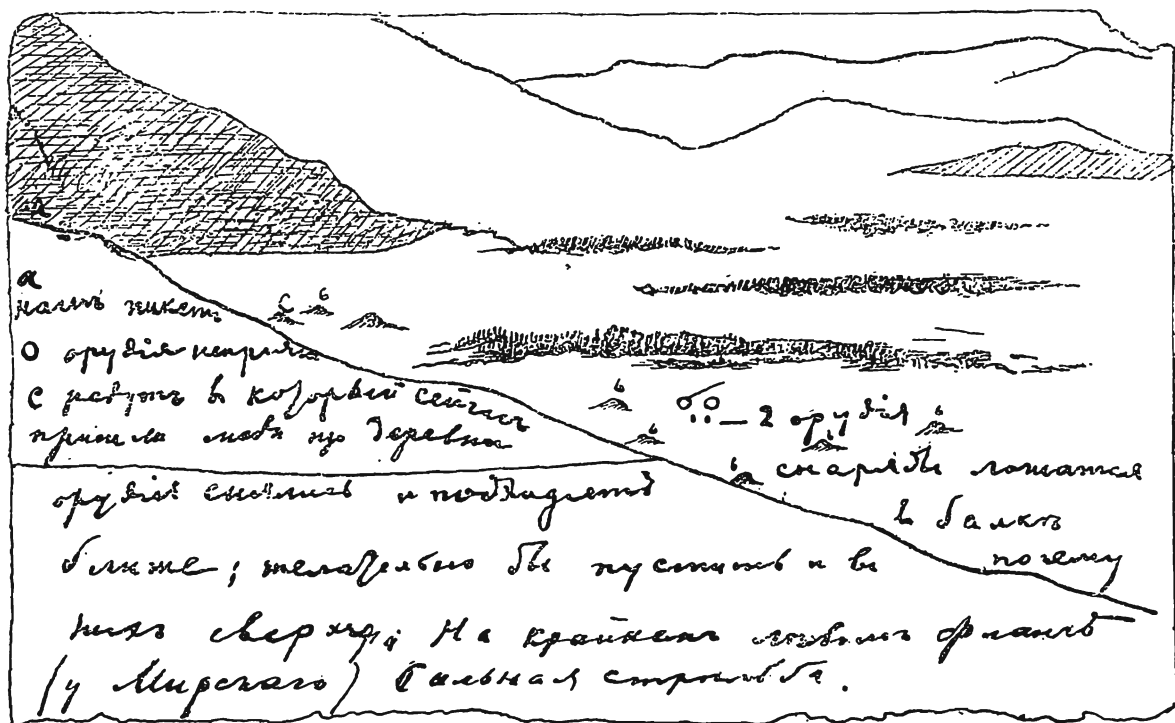 а
нашъ пикетъ
о орудія непрія
с редутъ въ который сейчасъ
пришла
деревни
с в
в
в
2 орудія
в
в
снаряды ложатся
въ балкѣ
почему
орудія снялись и подъ
ближе; желательно бы пустить и въ
нихъ сверху; На крайнемъ лѣвомъ флангѣ
(у Мирскаго) сильная стрѣльба.